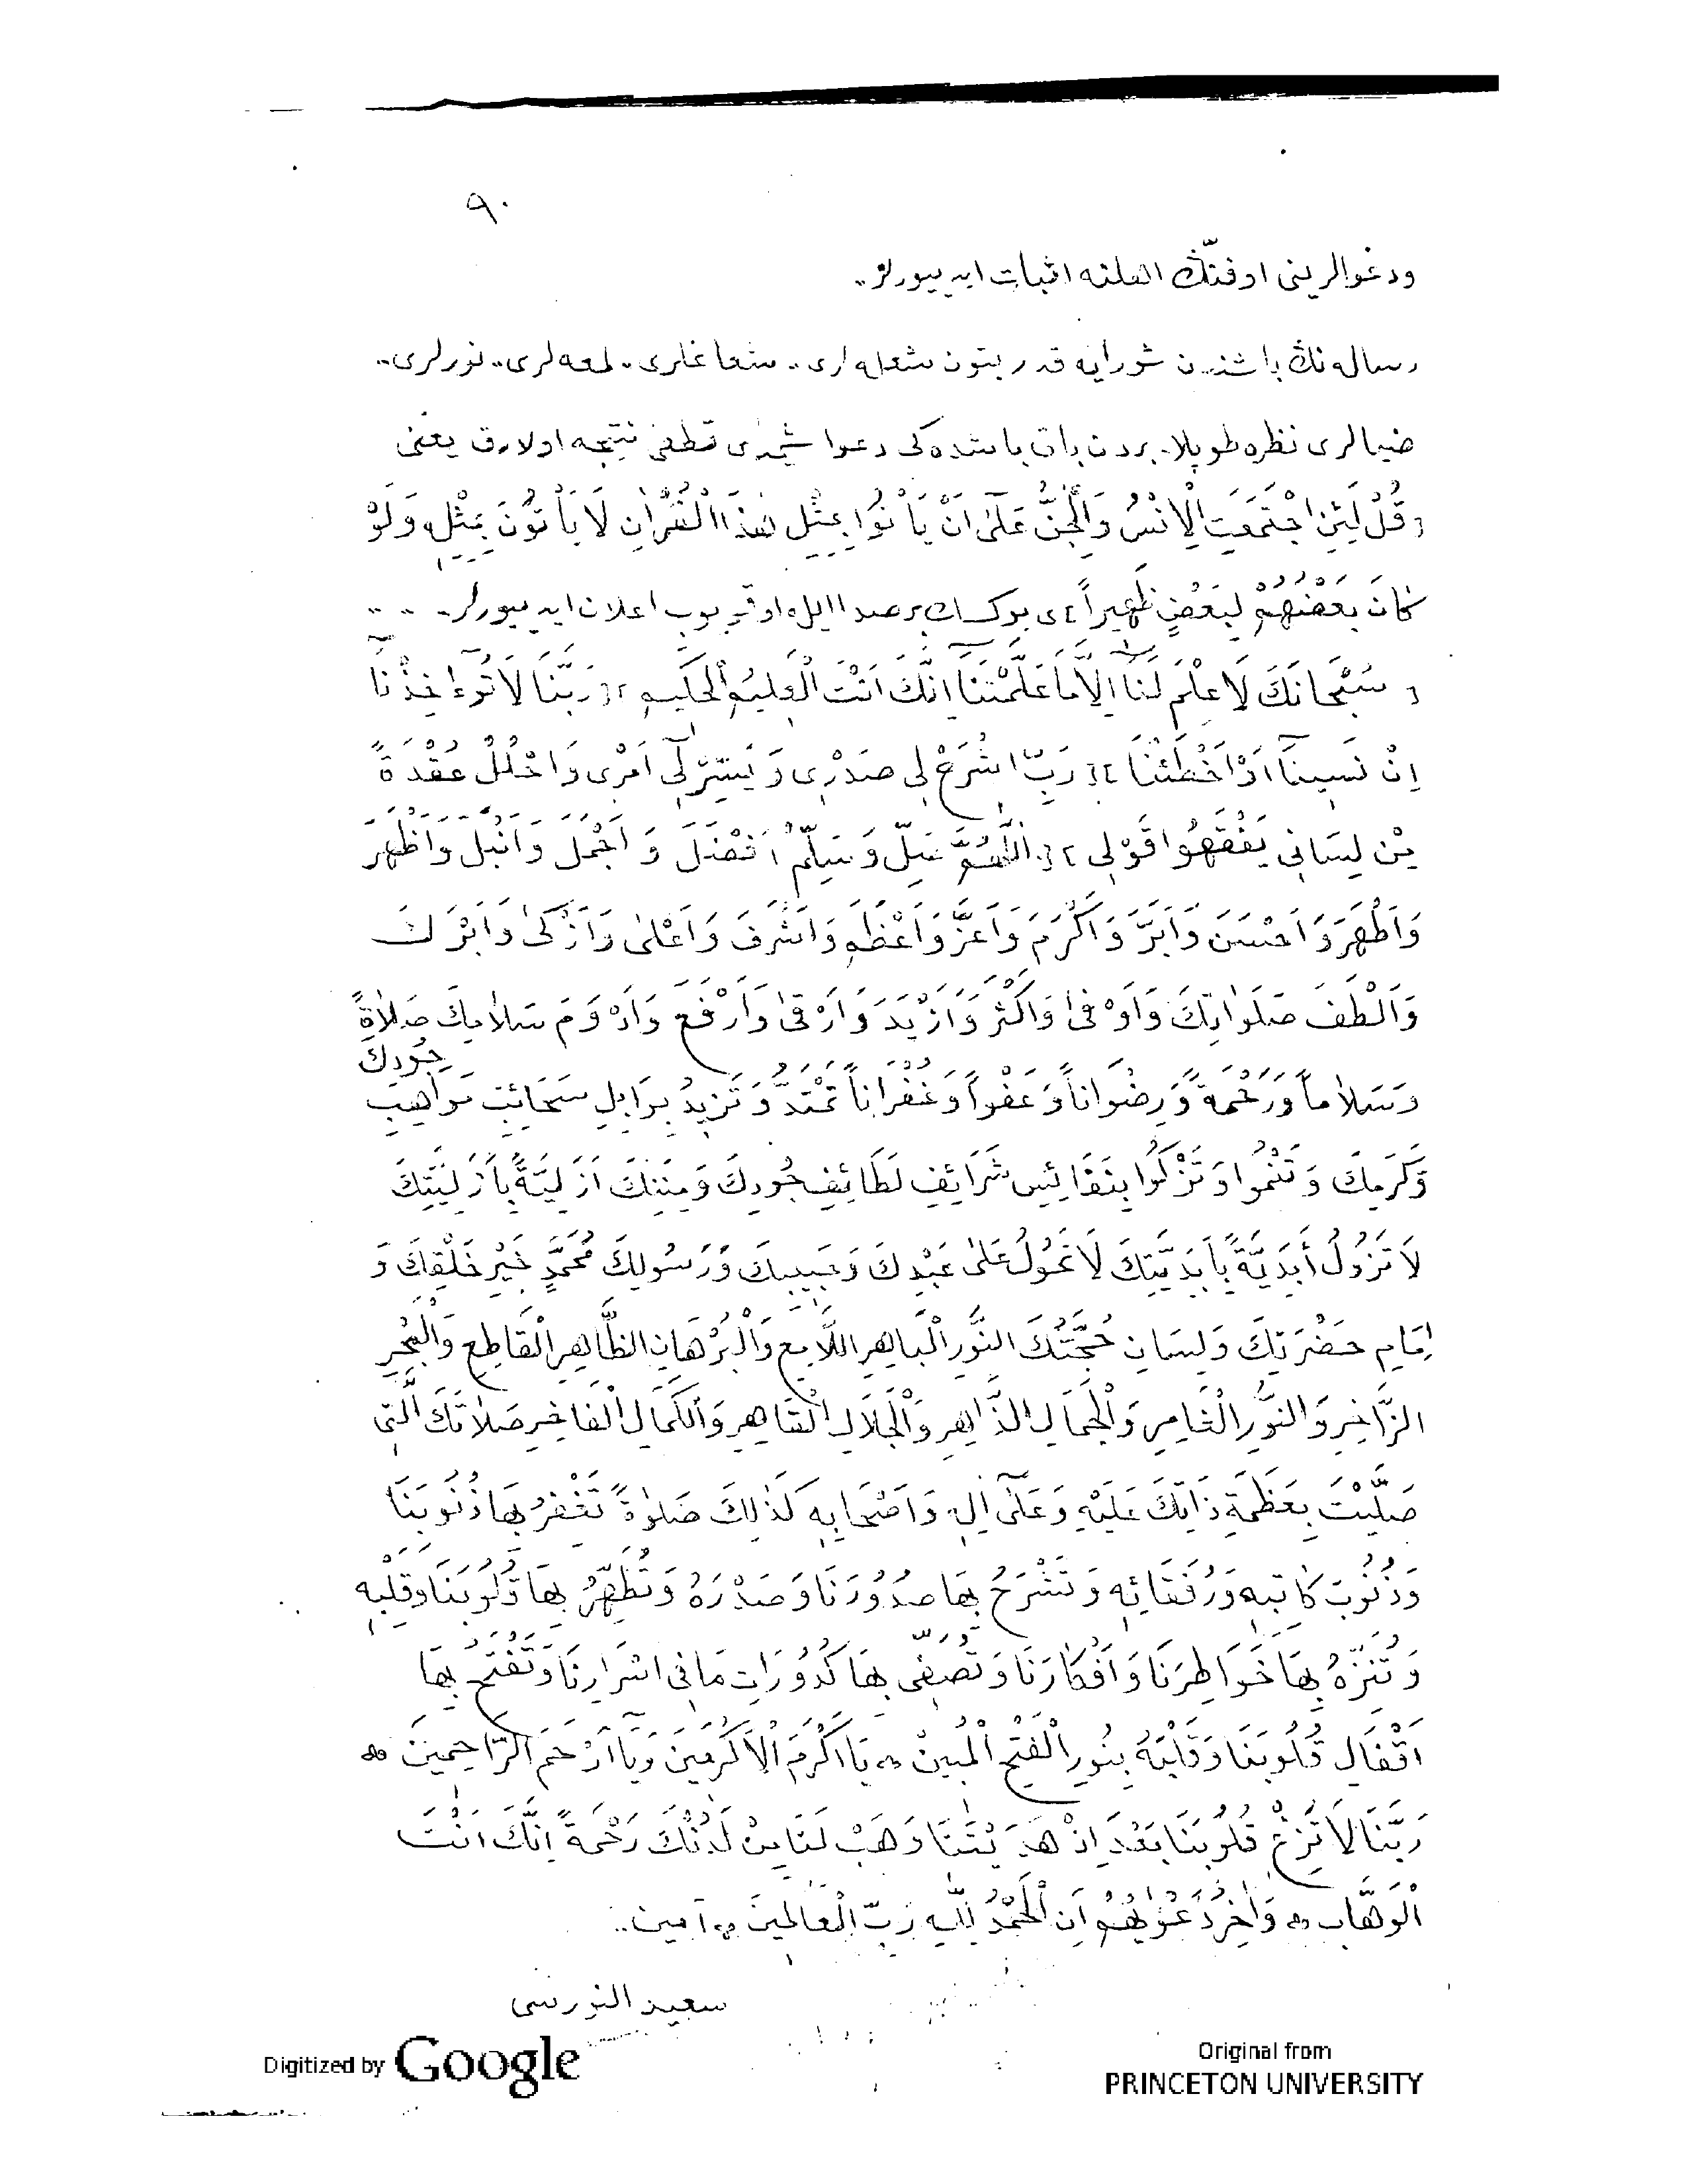 ٩٠
ودعوالرينى اوقتنك العلنه اثبات ايدييورلر..
رساله نك باشندن شورايه قدر بتون شعله لرى.. شعاعلرى.. لمعه لرى.. نورلرى..
ضيالرى نظره طوپلا. بردن باق باشده كى دعوا شيمدى قطعى نتيجه اولارق يعنى
﴿ قُلْ لَئِنِ اجْتَمَعَتِ الْاِنْسُ وَالْجِنُّ عَلٰٓى اَنْ يَاْتُوا بِمِثْلِ هٰذَا الْقُرْاٰنِ لَا يَاْتُونَ بِمِثْلِهِ وَلَوْ
كَانَ بَعْضُهُمْ لِبَعْضٍ ظَهِيراً ﴾ ى يوكسك برصدا ايله اوقويوب اعلان ايدييورلر. . . ..
﴿ سُبْحَانَكَ لَا عِلْمَ لَنَا اِلَّا مَا عَلَّمْتَنَا اِنَّكَ اَنْتَ الْعَلِيمُ الْحَكِيمُ ﴾﴿ رَبَّنَا لَا تُؤَاخِذْنَا
اِنْ نَسِينَا اَوْ اَخْطَئْنَا ﴾﴿ رَبِّ اشْرَحْ لِى صَدْرِى وَ يَسِّرْ لِٓى اَمْرِى وَاحْلُلْ عُقْدَةً
مِنْ لِسَانِى يَفْقَهُوا قَوْلِى ﴾﴿ اَللّٰهُمَّ صَلِّ وَ سَلِّمْ اَفْضَلَ وَ اَجْمَلَ وَ اَنْبَلَ وَ اَظْهَرَ
وَاَطْهَرَ وَ اَحْسَنَ وَ اَبَرَّ وَ اَكْرَمَ وَ اَعَزَّ وَ اَعْظَمَ وَ اَشْرَفَ وَ اَعْلٰى وَ اَزْكٰى وَ اَبْرَكَ
وَاَلْطَفَ صَلَوَاتِكَ وَاَوْفٰى وَاَكْثَرَ وَاَزْيَدَ وَ اَرْقٰى وَ اَرْفَعَ وَاَدْوَمَ سَلَامِكَ صَلَاةً
وَسَلَاماً وَرَحْمَةً وَرِضْوَاناً وَعَفْواً وَغُفْرَاناً تَمْتَدُّ وَتَزِيدُ بِوَابِلِ سَحَائِبِ مَوَاهِبِ جُودِكَ
وَكَرَمِكَ وَ تَنْمُوا وَ تَزْكُوا بِنَفَائِسِ شَرَائِفِ لَطَائِفِ جُودِكَ وَ مِنَنِكَ اَزَلِيَّةً بِاَزَلِيَّتِكَ
لَا تَزُولُ أَبَدِيَّةً بِاَبَدِيَّتِكَ لَا تَحُولُ عَلٰى عَبْدِكَ وَ حَبِيبِكَ وَ رَسُولِكَ مُحَمَّدٍ خَيْرِ خَلْقِكَ وَ
اِمَامِ حَضْرَتِكَ وَ لِسَانِ حُجَّتِكَ النُّورِ الْبَاهِرِ اللَّامِعِ وَالْبُرْهَانِ الظَّاهِرِ الْقَاطِعِ وَالْبَحْرِ
الزَّاخِرِ وَالنُّورِ الْغَامِرِ وَالْجَمَالِ الزَّاهِرِ وَالْجَلَالِ الْقَاهِرِ وَالْكَمَالِ الْفَاخِرِ صَلَاتَكَ الَّتِى
صَلَّيْتَ بِعَظَمَةِ ذَاتِكَ عَلَيْهِ وَ عَلٰٓى اٰلِهِ وَ اَصْحَابِهِ كَذٰلِكَ صَلٰوةً تَغْفِرُ بِهَا ذُنُوبَنَا
وَذُنُوبَ كَاتِبِهِ وَ رُفَقَائِهِ وَ تَشْرَحُ بِهَا صُدُورَنَا وَ صَدْرَهُ وَ تُطَهِّرُ بِهَا قُلُوبَنَا وَقَلْبَهُ
وَ تُنَزِّهُ بِهَا خَوَاطِرَنَا وَ اَفْكَارَنَا وَ تُصَفِّى بِهَا كُدُورَاتِ مَا فِى اَسْرَارِنَا وَ تَفْتَحُ بِهَا
اَقْفَالَ قُلُوبَنَا وَ قَلْبَهُ بِنُورِ الْفَتْحِ الْمُبِينْ ۞ يَا اَكْرَمَ الْاَكْرَمِينَ وَيَا اَرْحَمَ الرَّاحِمِينَ ۞
رَبَّنَا لَا تُزِغْ قُلُوبَنَا بَعْدَ اِذْ هَدَيْتَنَا وَ هَبْ لَنَا مِنْ لَدُنْكَ رَحْمَةً اِنَّكَ اَنْتَ
الْوَهَّابُ ۞ وَاٰخِرُ دَعْوٰيهُمْ اَنِ الْحَمْدُ لِلّٰهِ رَبِّ الْعَالَمِينَ ۞ آمين..
سعيد النورسى
Digitized by Google
Original from
PRINCETON UNIVERSITY